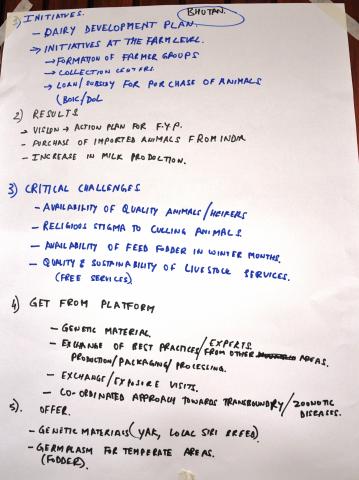 BHUTAN.
1) INITIATIVES.
- DAIRY DEVELOPMENT PLAN.
→ INITIATIVES AT THE FARM LEVEL.
→ FORMATION OF FARMER GROUPS
→ COLLECTION CENTERS.
→ LOAN/SUBSIDY FOR PURCHASE OF ANIMALS
(BOIC/DOL
2) RESULTS
→ VISION → ACTION PLAN FOR F.Y.P.
- PURCHASE OF IMPORTED ANIMALS FROM INDIA
- INCREASE IN MILK PRODUCTION.
3) CRITICAL CHALLENGES
- AVAILABILITY OF QUALITY ANIMALS/HEIFERS
- RELIGIOUS STIGMA TO CULLING ANIMALS.
- AVAILABILITY OF FEED FODDER IN WINTER MONTHS.
- QUALITY & SUSTAINABILITY OF LIVESTOCK SERVICES.
(FREE SERVICES)
4) GET FROM PLATFORM
- GENETIC MATERIAL.
- EXCHANGE OF BEST PRACTICES/EXPERTS FROM OTHER AREAS.
PRODUCTION/PACKAGING/PROCESSING.
- EXCHANGE/EXPOSURE VISITS.
- CO-ORDINATED APPROACH TOWARDS TRANSBOUNDRY/ZOONOTIC DISEASES.
5). OFFER.
- GENETIC MATERIALS (YAK, LOCAL SIRI BREED).
- GERMPLASM FOR TEMPERATE AREAS.
(FODDER).